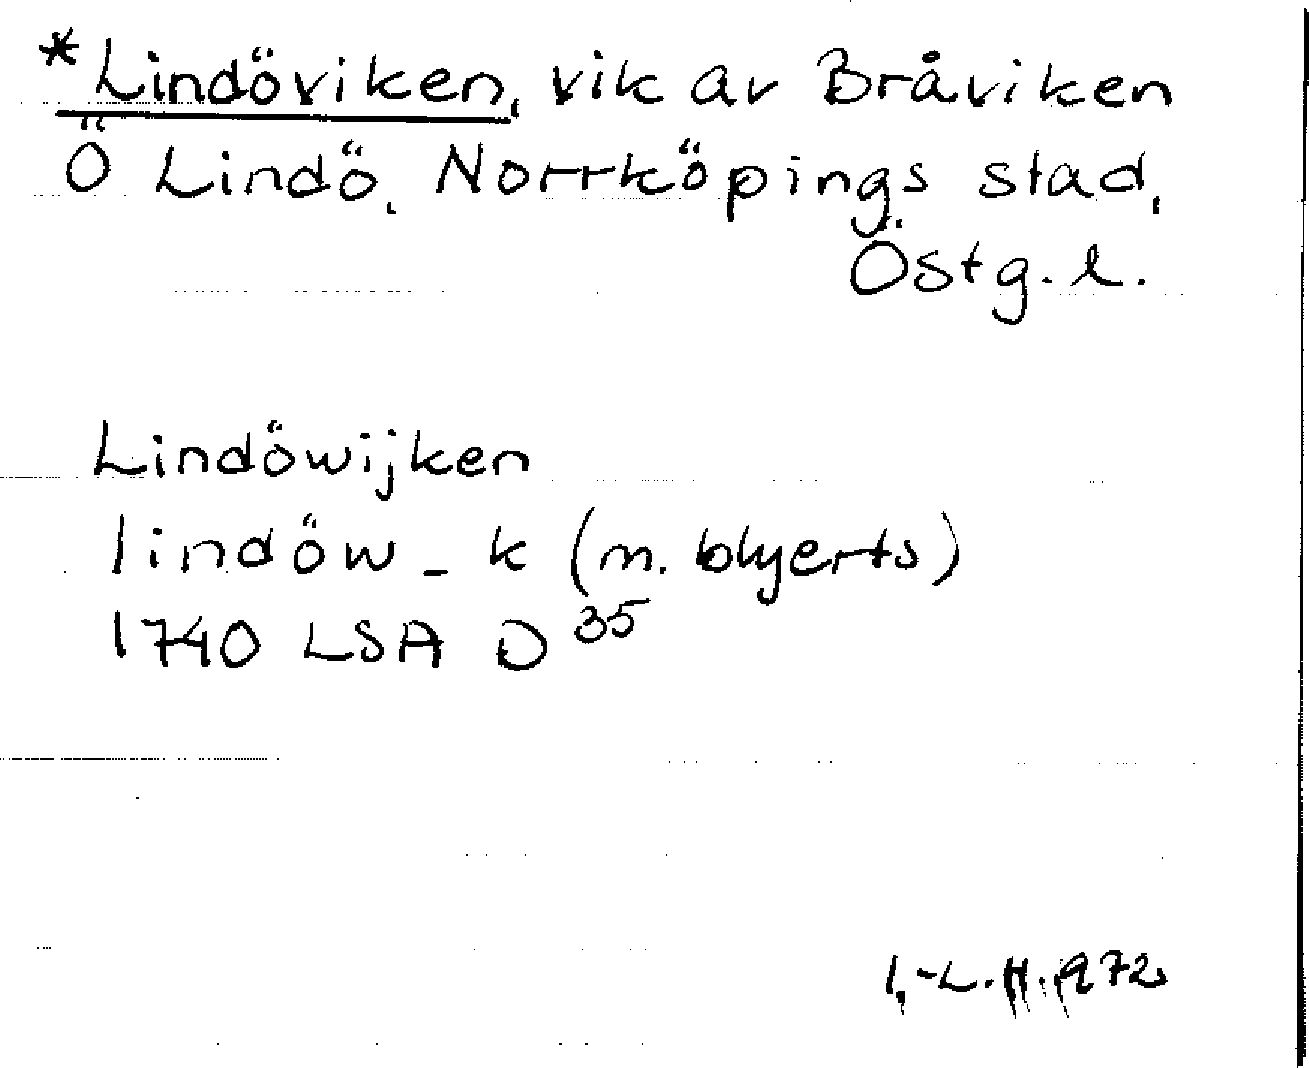 *Lindöviken, vik av Bråviken
Ö Lindö, Norrköpings stad,
Östg. l.
Lindöwijken
lindöw_k (m. blyerts)
1740 LSA D 35
I.-L. H. 1972